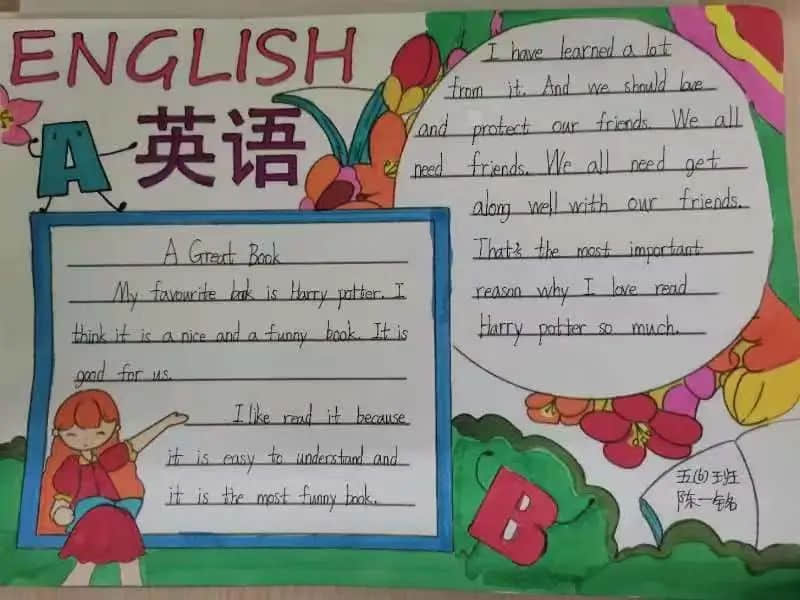 ENGLISH
英语
A
A Great Book
My favourite book is Harry potter. I
think it is a nice and a funny book. It is
good for us.
I like read it because
it is easy to understand and
it is the most funny book.
I have learned a lot
from it. And we should love
and protect our friends. We all
need friends. We all need get
along well with our friends.
That's the most important
reason why I love read
Harry potter so much.
B
五(6)班
陈一铭